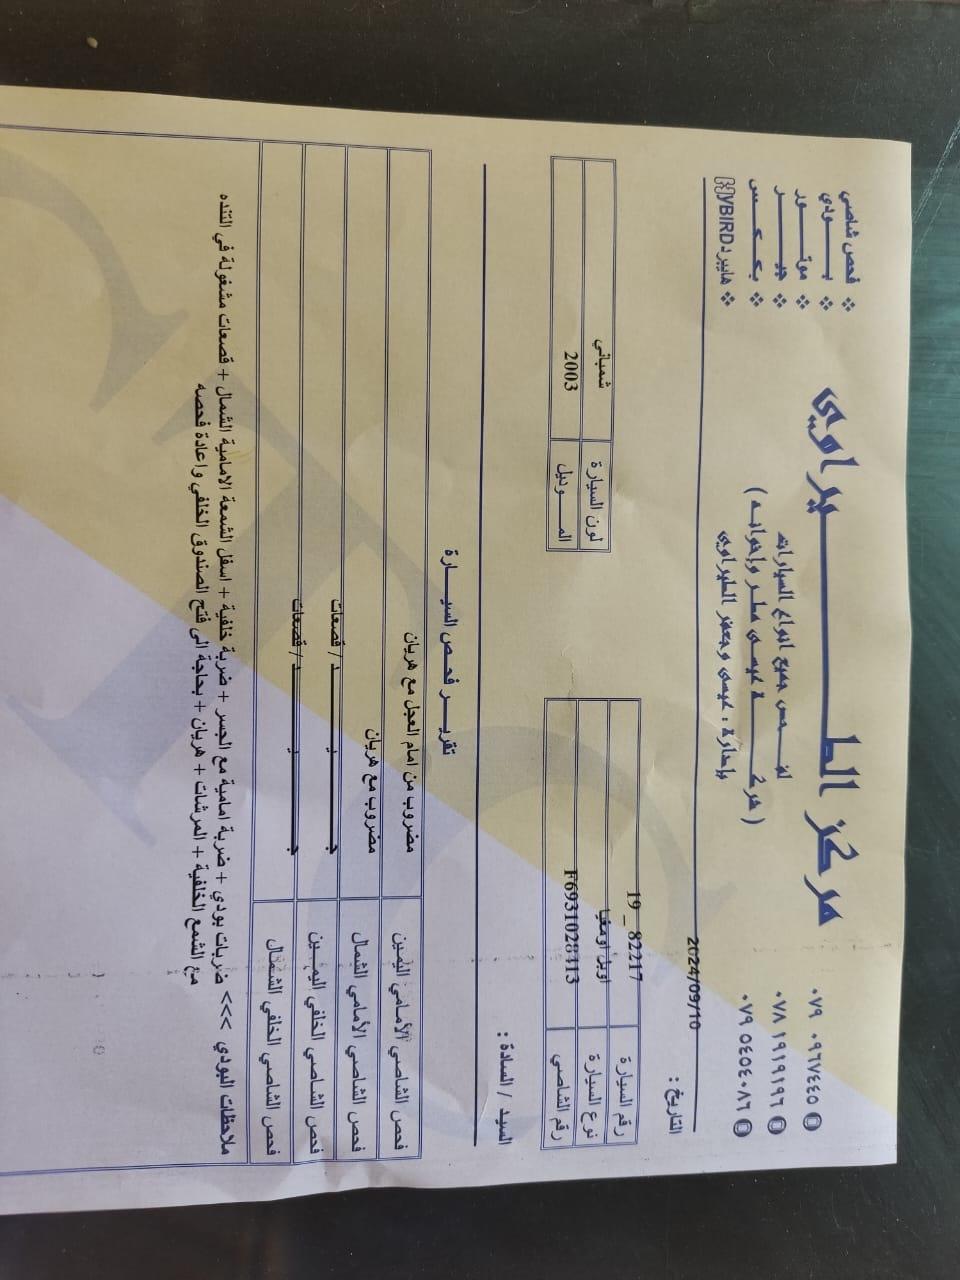 ❖ فحص شاصي
❖ بـــودي
❖ موتـــور
❖ جيـــــر
❖ بكـــس
❖ هايبرد HYBIRD
مركز الطـــــيراوي
لفـــحص جميع انواع السيارات
( شركـــــة عيسى مطر وإخوانه )
بإدارة : عيسى وجعفر الطيراوي
٠٧٩ ٠٩٦٧٤٤٥
٠٧٨ ١٩١٩١٩٦
٠٧٩ ٥٤٥٤٠٨٦
التاريخ : 2024/09/10
رقم السيارة 19 _ 82217
نوع السيارة اوبل اوميغا
لون السيارة شمباني
رقم الشاصي F6931028413
المـــوديل 2003
السيد / السادة :
تقريـــر فحـص السيــــارة
فحص الشاصي الأمامي اليمين مضروب من امام العجل مع هريان
فحص الشاصي الأمامي الشمال مضروب مع هريان
فحص الشاصي الخلفي اليمــين جـــــــيد / قصعات
فحص الشاصي الخلفي الشمال جـــــــيد / قصعات
ملاحظات البودي >>> ضربات بودي + ضربة امامية مع الجسر + ضربة خلفية + اسفل الشمعة الامامية الشمال + قصعات مشغولة في التنده
مع الشمع الخلفية + المرشات + هريان + بحاجة الى فتح الصندوق الخلفي واعادة فحصه